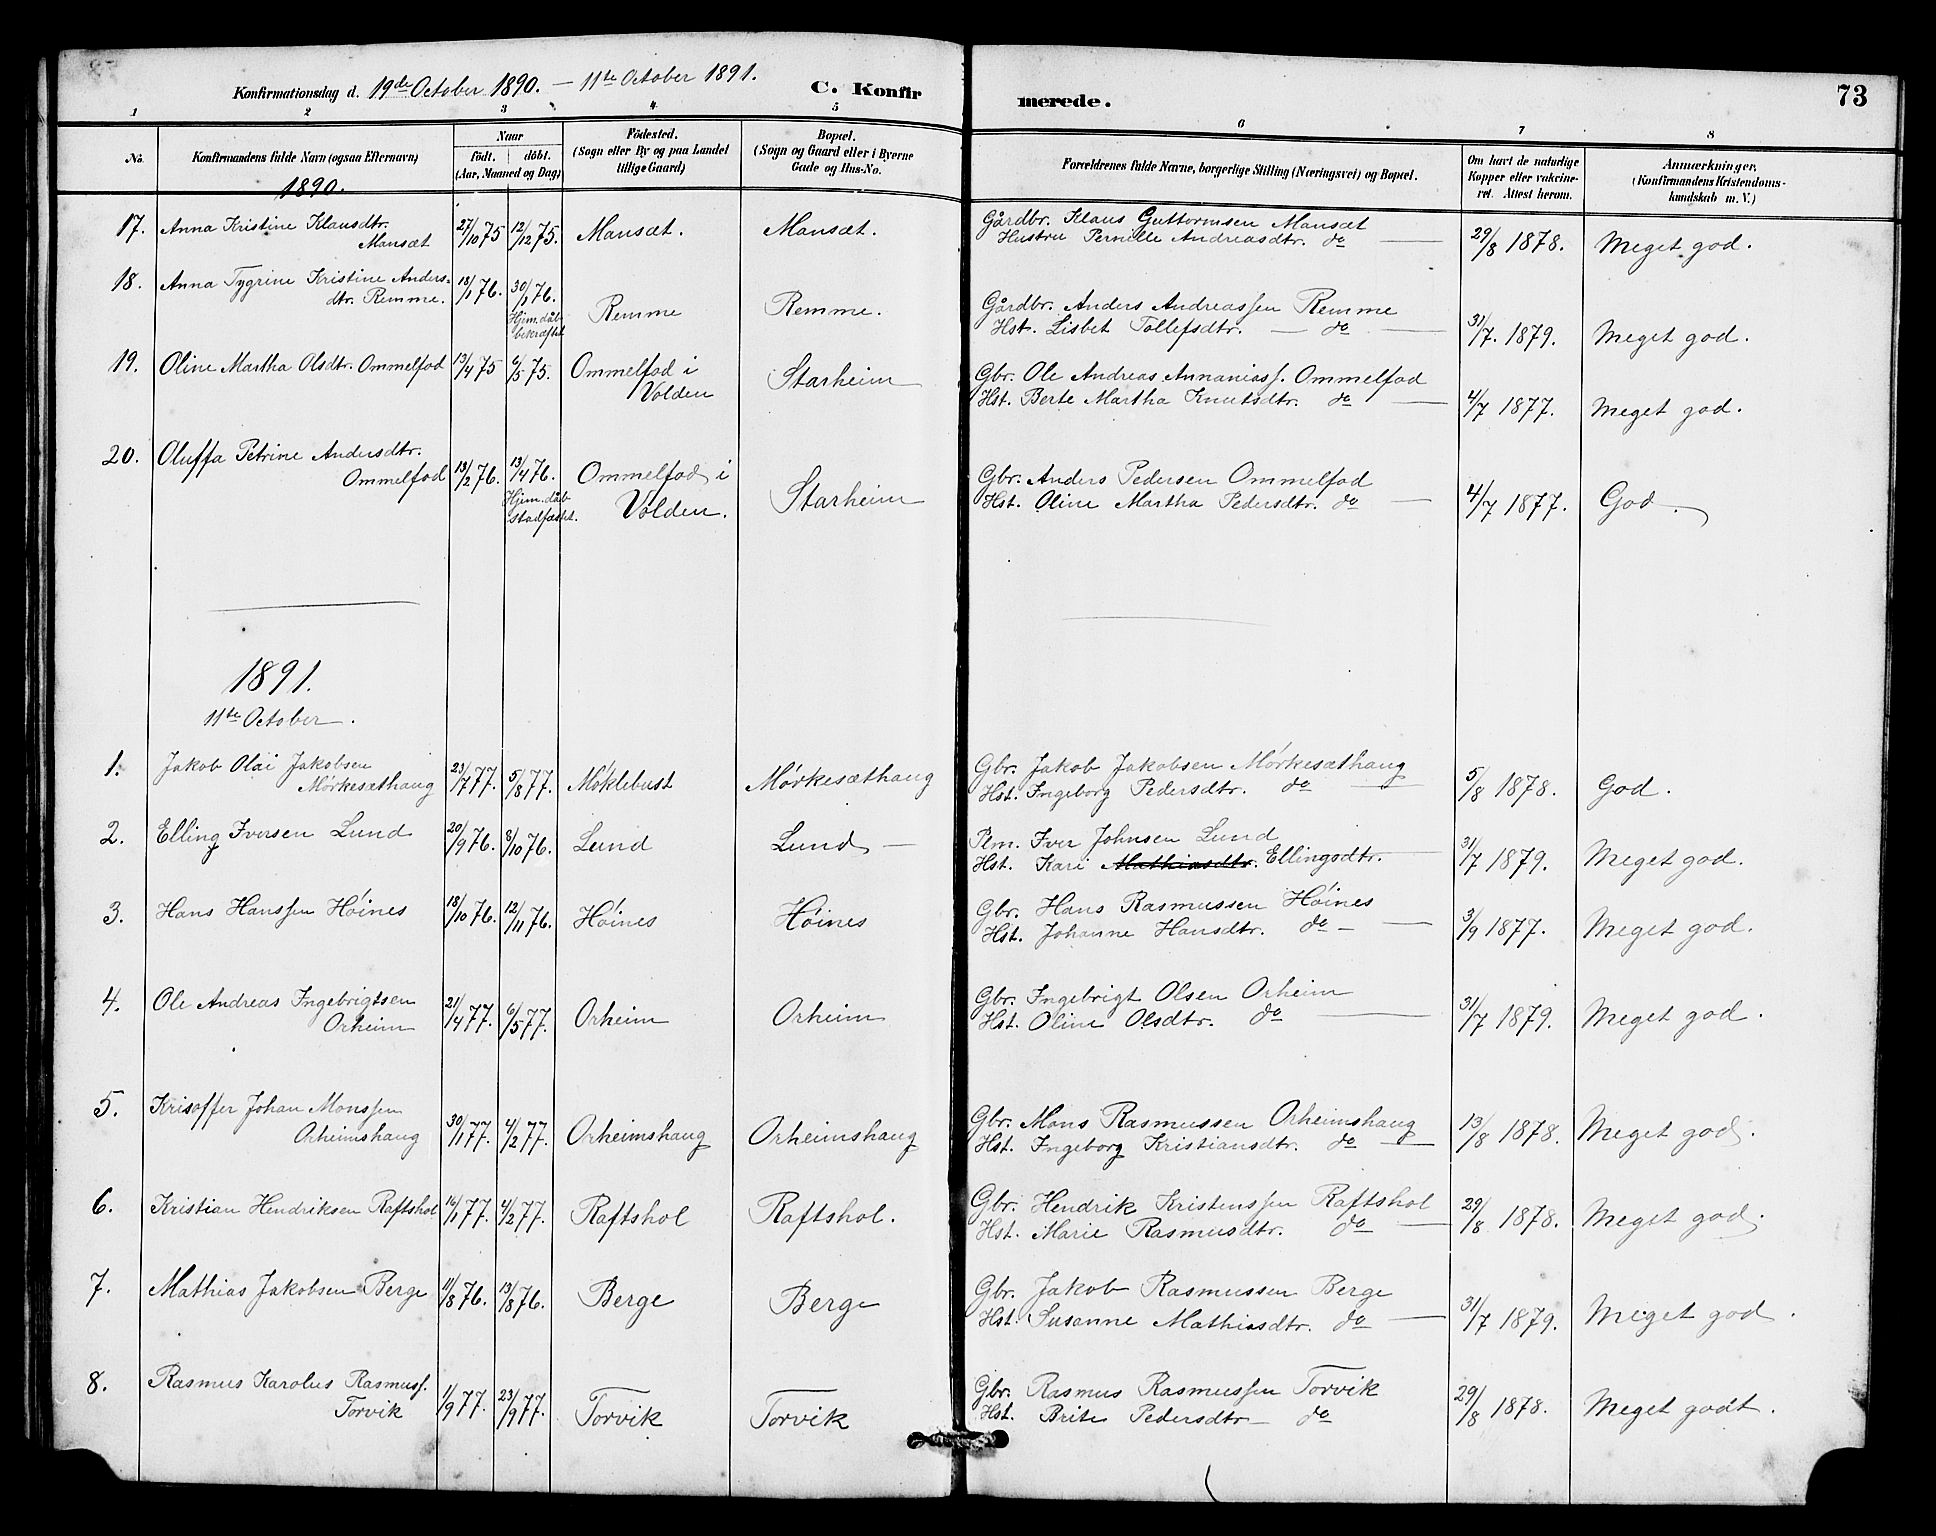 Konfirmationsdag d. 19de October 1890. — 11te October 1891.
C. Konfirmerede.
73
1 2 3 4 5 6 7 8
No.
Konfirmandens fulde Navn (ogsaa Efternavn)
Naar
födt. | döbt.
(Aar, Maaned og Dag)
Födested.
(Sogn eller By og paa Landet
tillige Gaard)
Bopæl.
(Sogn og Gaard eller i Byerne
Gade og Hus-No.
Forældrenes fulde Navne, borgerlige Stilling (Næringsvei) og Bopæl.
Om havt de naturlige
Kopper eller vakcine-
ret. Attest herom.
Anmærkninger,
(Konfirmandens Kristendoms-
kundskab m. V.)
1890.
17. Anna Kristine Klausdtr. Mansæt 27/10 75 12/12 75. Mansæt. Mansæt. Gårdbr. Klaus Guttormsen Mansæt
Hustru Pernille Andreasdtr. do — 29/8 1878. Meget god.
18. Anna Tygrine Kristine Anders-
dtr. Remme. 18/1 76. 30/1 76. Hjem.dåb bekræftet Remme Remme. Gårdbr. Anders Andreassen Remme
Hst. Lisbet Tollefsdtr. — do — 31/7. 1879. Meget god.
19. Oline Martha Olsdtr. Ommelfod 13/4 75 6/5 75. Ommelfod i Volden Starheim Gbr. Ole Andreas Annaniass. Ommelfod
Hst. Berte Martha Knutsdtr. do — 4/7 1877. Meget god.
20. Oluffa Petrine Andersdtr.
Ommelfod 13/2 76. 13/4 76. Hjem.dåb stadfæstet. Ommelfod i Volden. Starheim Gbr. Anders Pedersen Ommelfod
Hst. Oline Martha Pedersdtr. do — 4/7 1877. God.
1891.
11te October.
1. Jakob Olai Jakobsen
Mørkesæthaug 23/7 77. 5/8 77. Møklebust Mørkesæthaug Gbr. Jakob Jakobsen Mørkesæthaug
Hst. Ingeborg Pedersdtr. do — 5/8 1878. God.
2. Elling Iversen Lund 20/9 76. 8/10 76. Lund Lund — Plm. Iver Johnsen Lund
Hst. Kari Mathiasdtr. Ellingsdtr. — 31/7 1879. Meget god.
3. Hans Hanssen Høines 18/10 76. 12/11 76. Høines Høines Gbr. Hans Rasmussen Høines
Hst. Johanne Hansdtr. do — 3/9 1877. Meget god.
4. Ole Andreas Ingebrigtsen
Orheim 21/4 77. 6/5 77. Orheim Orheim Gbr. Ingebrigt Olsen Orheim
Hst. Oline Olsdtr. do — 31/7 1879. Meget god.
5. Krisoffer Johan Monssen
Orheimshaug 30/1 77. 4/2 77. Orheimshaug Orheimshaug Gbr. Mons Rasmussen Orheimshaug
Hst. Ingeborg Kristiansdtr. do — 13/8 1878. Meget god.
6. Kristian Hendriksen Raftshol 16/1 77. 4/2 77. Raftshol Raftshol. Gbr. Hendrik Kristenssen Raftshol
Hst. Marie Rasmusdtr. do — 29/8 1878. Meget god.
7. Mathias Jakobsen Berge 11/8 76. 13/8 76. Berge Berge Gbr. Jakob Rasmussen Berge
Hst. Susanne Mathiasdtr. do — 31/7 1879. Meget god.
8. Rasmus Karolus Rasmuss.
Torvik 1/9 77. 23/9 77. Torvik Torvik Gbr. Rasmus Rasmussen Torvik
Hst. Brite Pedersdtr — do 29/8 1878. Meget godt.